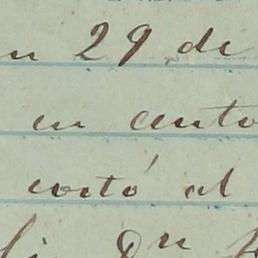 n 29 de
en cento
costó al
Dn